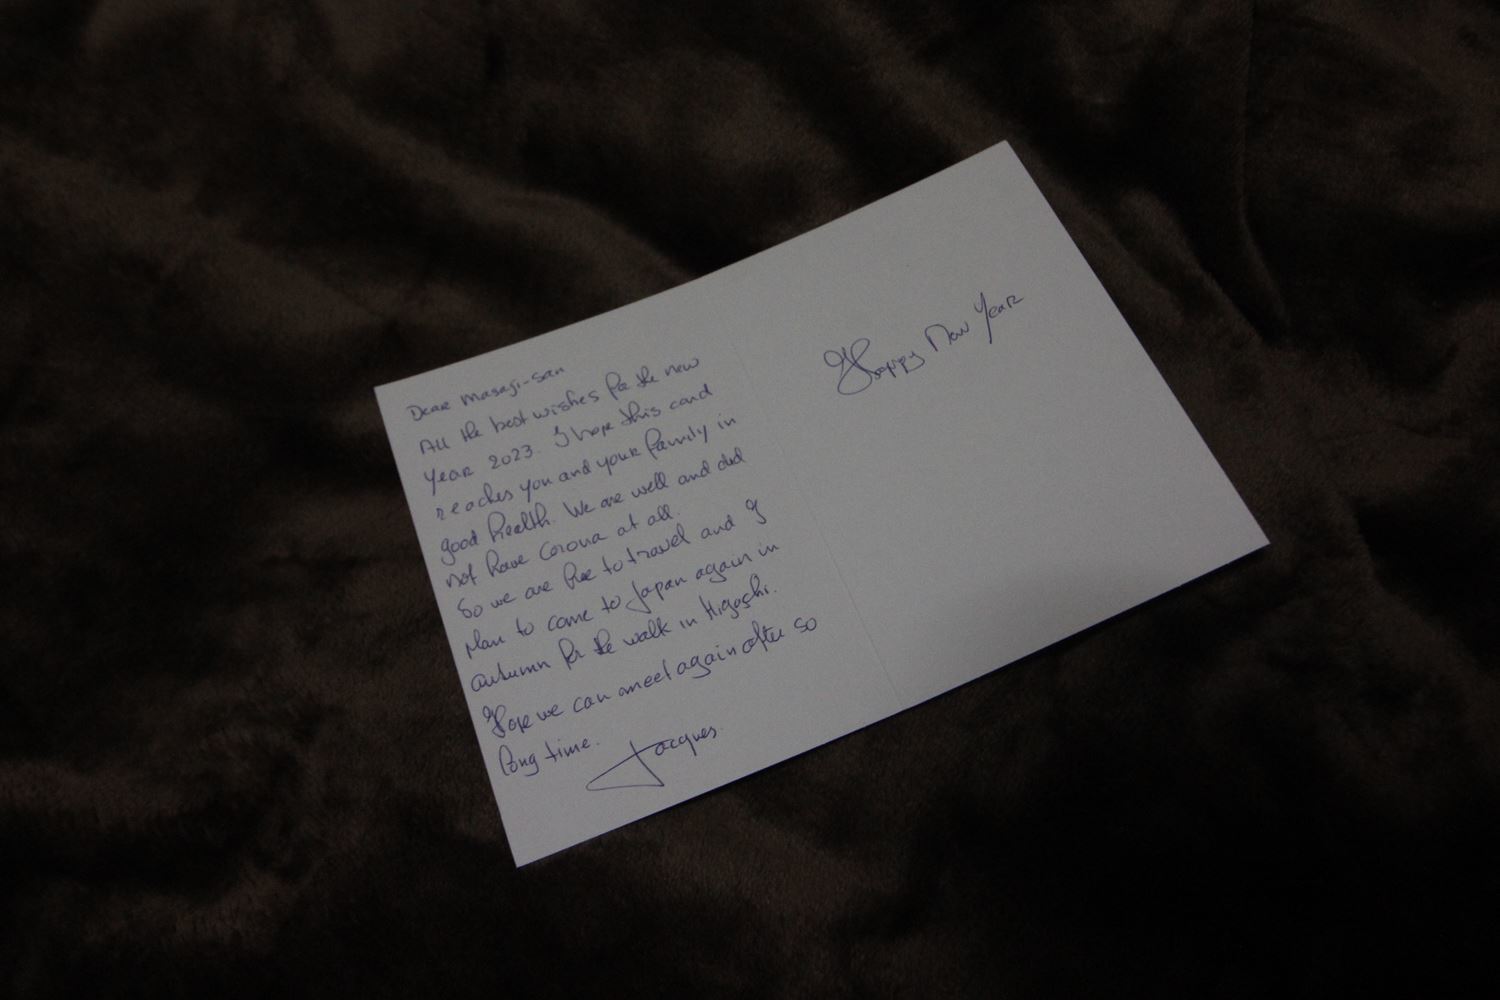 Dear Masaji-San
All the best wishes for the new
Year 2023. I hope this card
reaches you and your family in
good health. We are well and did
not have Corona at all.
So we are free to travel and I
plan to come to Japan again in
autumn for the walk in Higashi.
Hope we can meet again after so
long time.
Jacques
Happy New Year